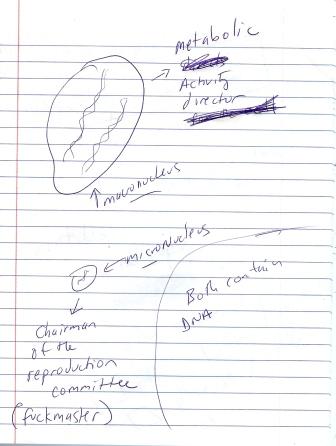 metabolic
Activity
director
macronucleus
micronucleus
Chairman
of the
reproduction
committee
(fuckmaster)
Both contain
DNA